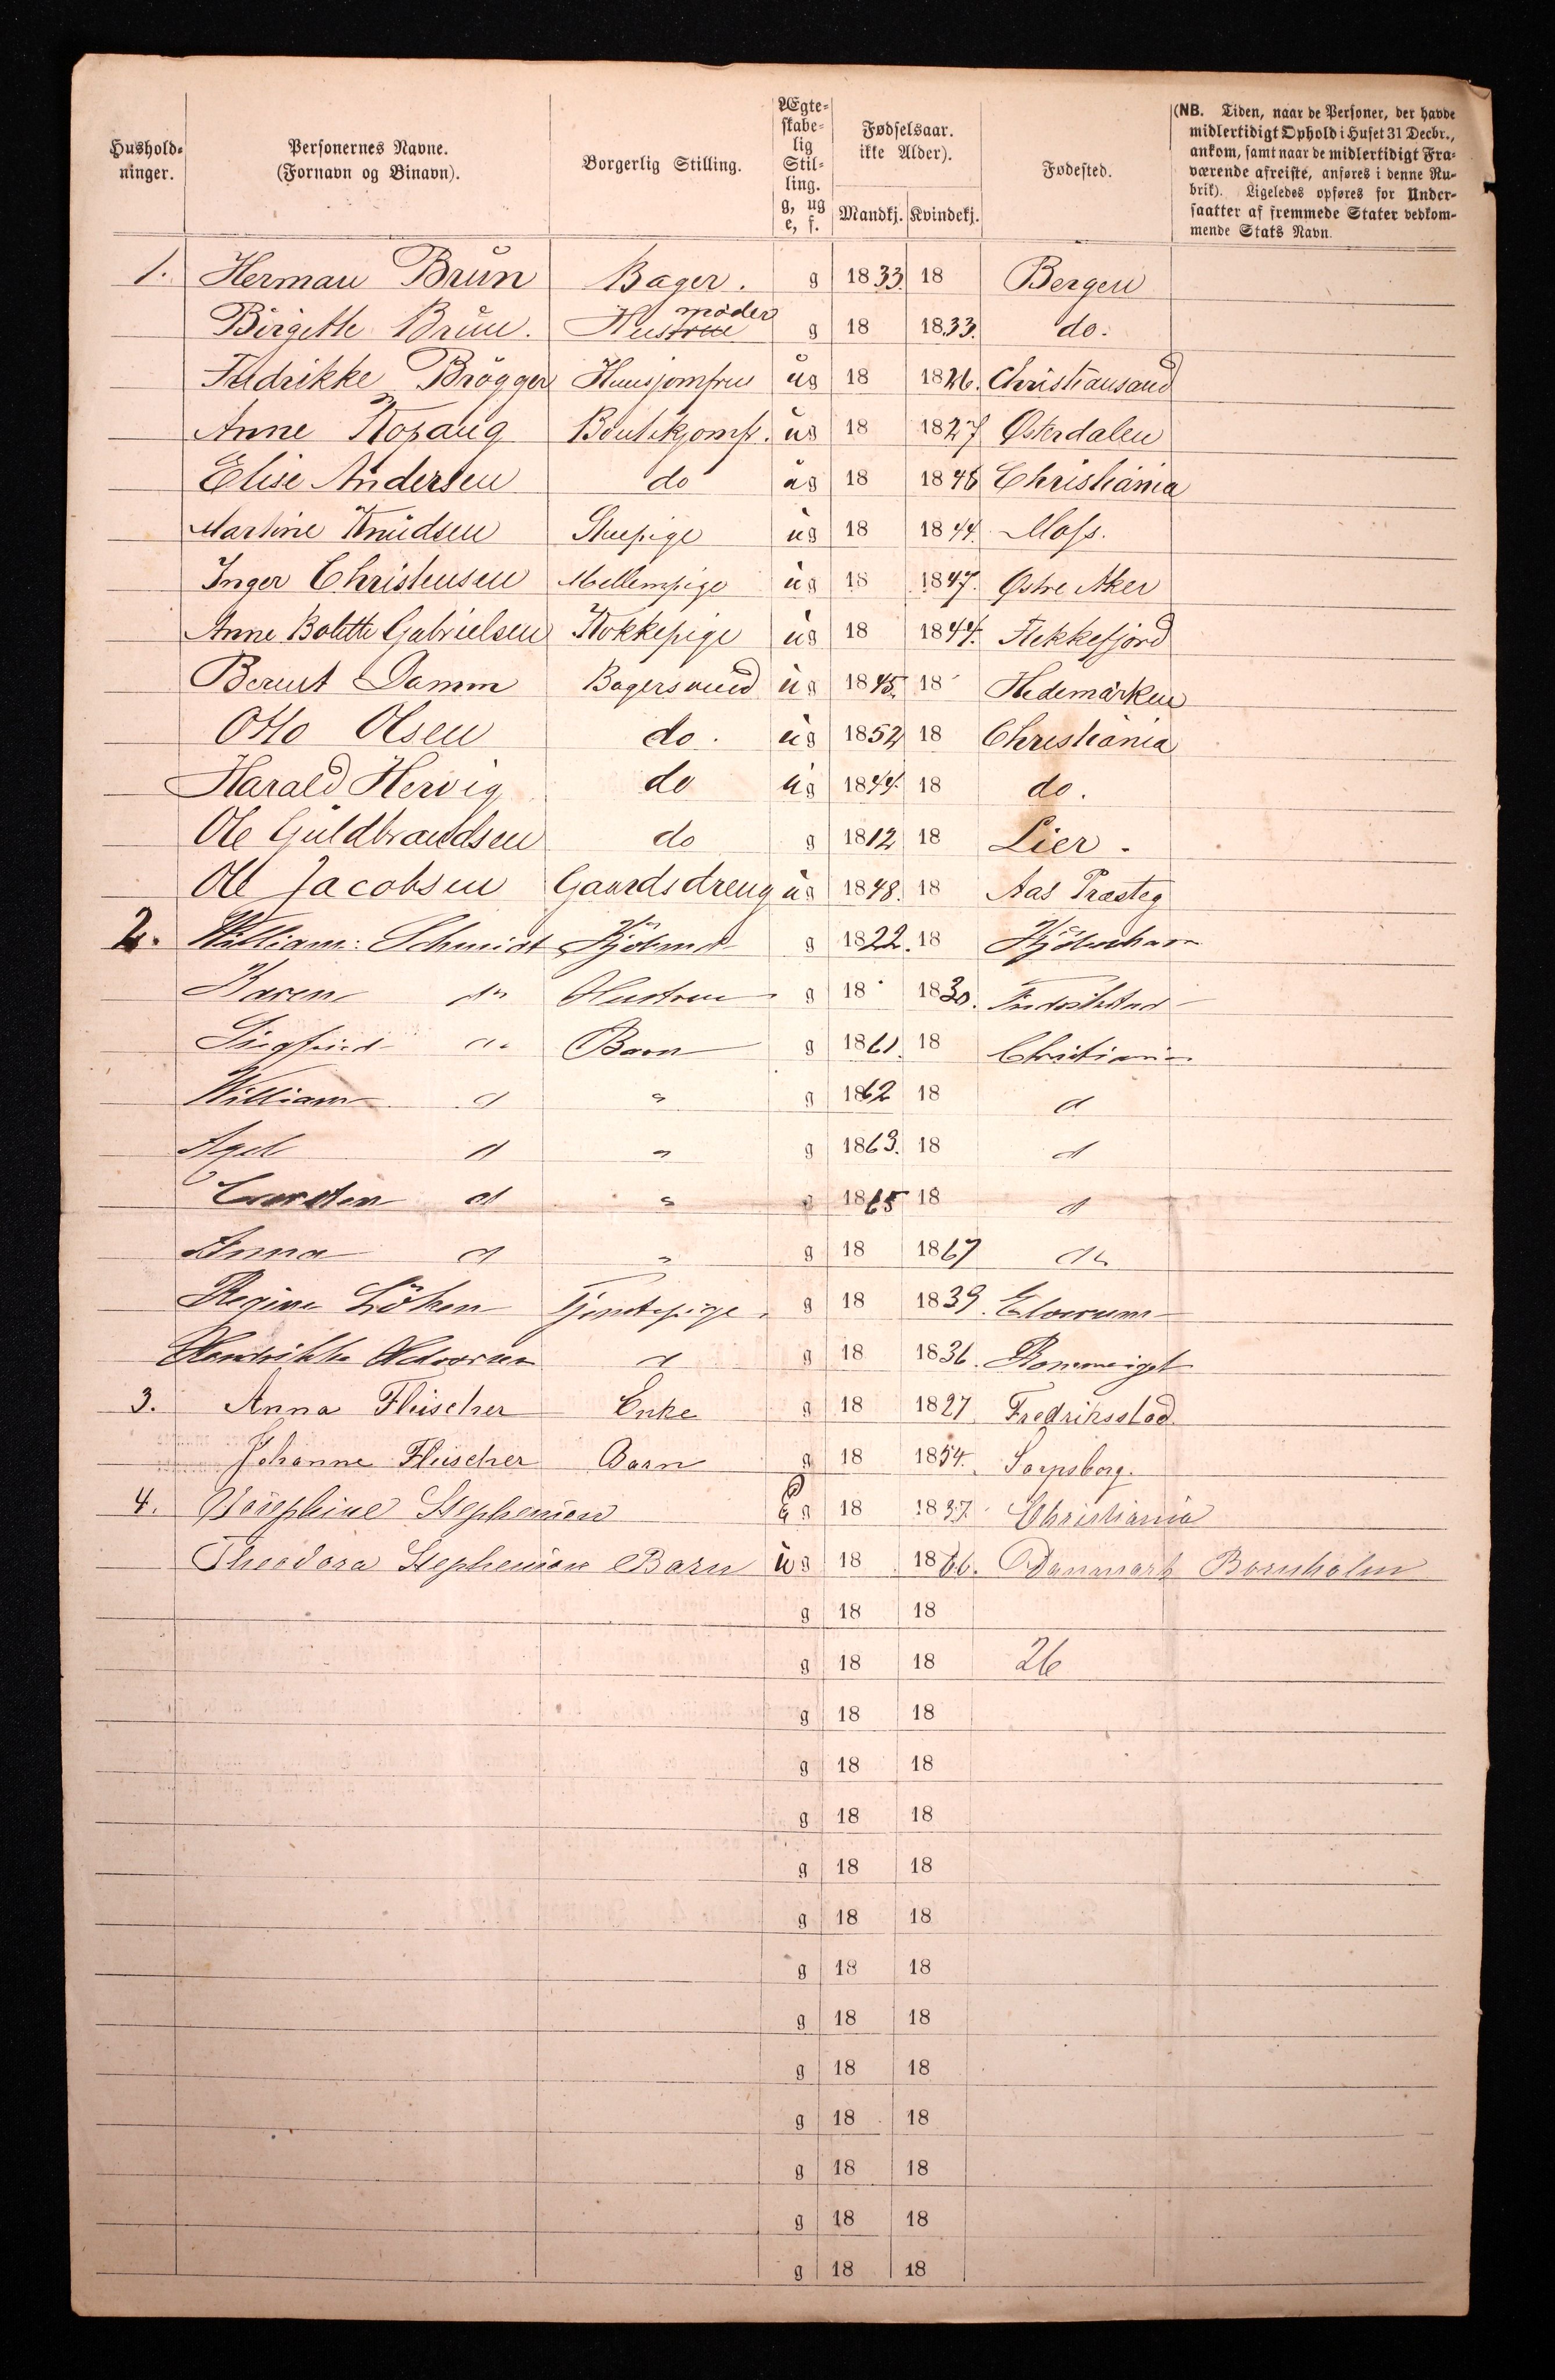 Hushold-
ninger.
Personernes Navne.
(Fornavn og Binavn).
Borgerlig Stilling.
Ægte-
skabe-
lig
Stil-
ling.
g, ug
e, f.
Fødselsaar.
ikke Alder).
Mandkj. Kvindekj.
Fødested.
(NB. Tiden, naar de Personer, der havde
midlertidigt Ophold i Huset 31 Decbr.,
ankom, samt naar de midlertidigt Fra-
værende afreiste, anføres i denne Ru-
brik). Ligeledes opføres for Under-
saatter af fremmede Stater vedkom-
mende Stats Navn.
1. Herman Brun Bager. g 1833 18 Bergen
Birgette Brun. Hustrue moder g 18 1833. do.
Fredrikke Brögger Huusjomfru ug 18 1826. Christiansand
Anne Kopang Boutikjomf. ug 18 1827 Østerdalen
Elise Andersen do ug 18 1848 Christiania
Martine Knudsen Stuepige ug 18 1844. Moss.
Inger Christensen Mellempige ug 18 1847. Østre Aker
Anne Bolette Gabrielsen Kokkepige ug 18 1844. Flekkefjord
Bernt Damm Bagersvend ug 1845. 18 Hedemarken
Otto Olsen do. ug 1852 18 Christiania
Harald Hervig do ug 1844. 18 do.
Ole Guldbrandsen do g 1812 18 Lier.
Ole Jacobsen Gaardsdreng ug 1848. 18 Aas Præsteg
2. William Schmidt Kjøbmd g 1822. 18 Kjøbenhavn
Karen do Hustrue g 18 1830. Fredrikstad
Siegfried do Barn g 1861. 18 Christiania
William d " g 1862 18 d
Axel d " g 1863. 18 d
Carsten d " g 1865 18 d
Anna d " g 18 1867 do
Regine Löken Tjenstepige. g 18 1839. Elverum
Hendrikke Halvorsen d g 18 1836.
3. Anna Fleischer Enke g 18 1827 Fredriksstad
Johanne Fleischer Barn g 18 1854. Sarpsborg.
4. Josephine Stephensen g 18 1837. Christiania
Theodora Stephensen Barn ug 18 1866. Danmark Bornholm
g 18 18
g 18 18 26
g 18 18
g 18 18
g 18 18
g 18 18
g 18 18
g 18 18
g 18 18
g 18 18
g 18 18
g 18 18
g 18 18
g 18 18